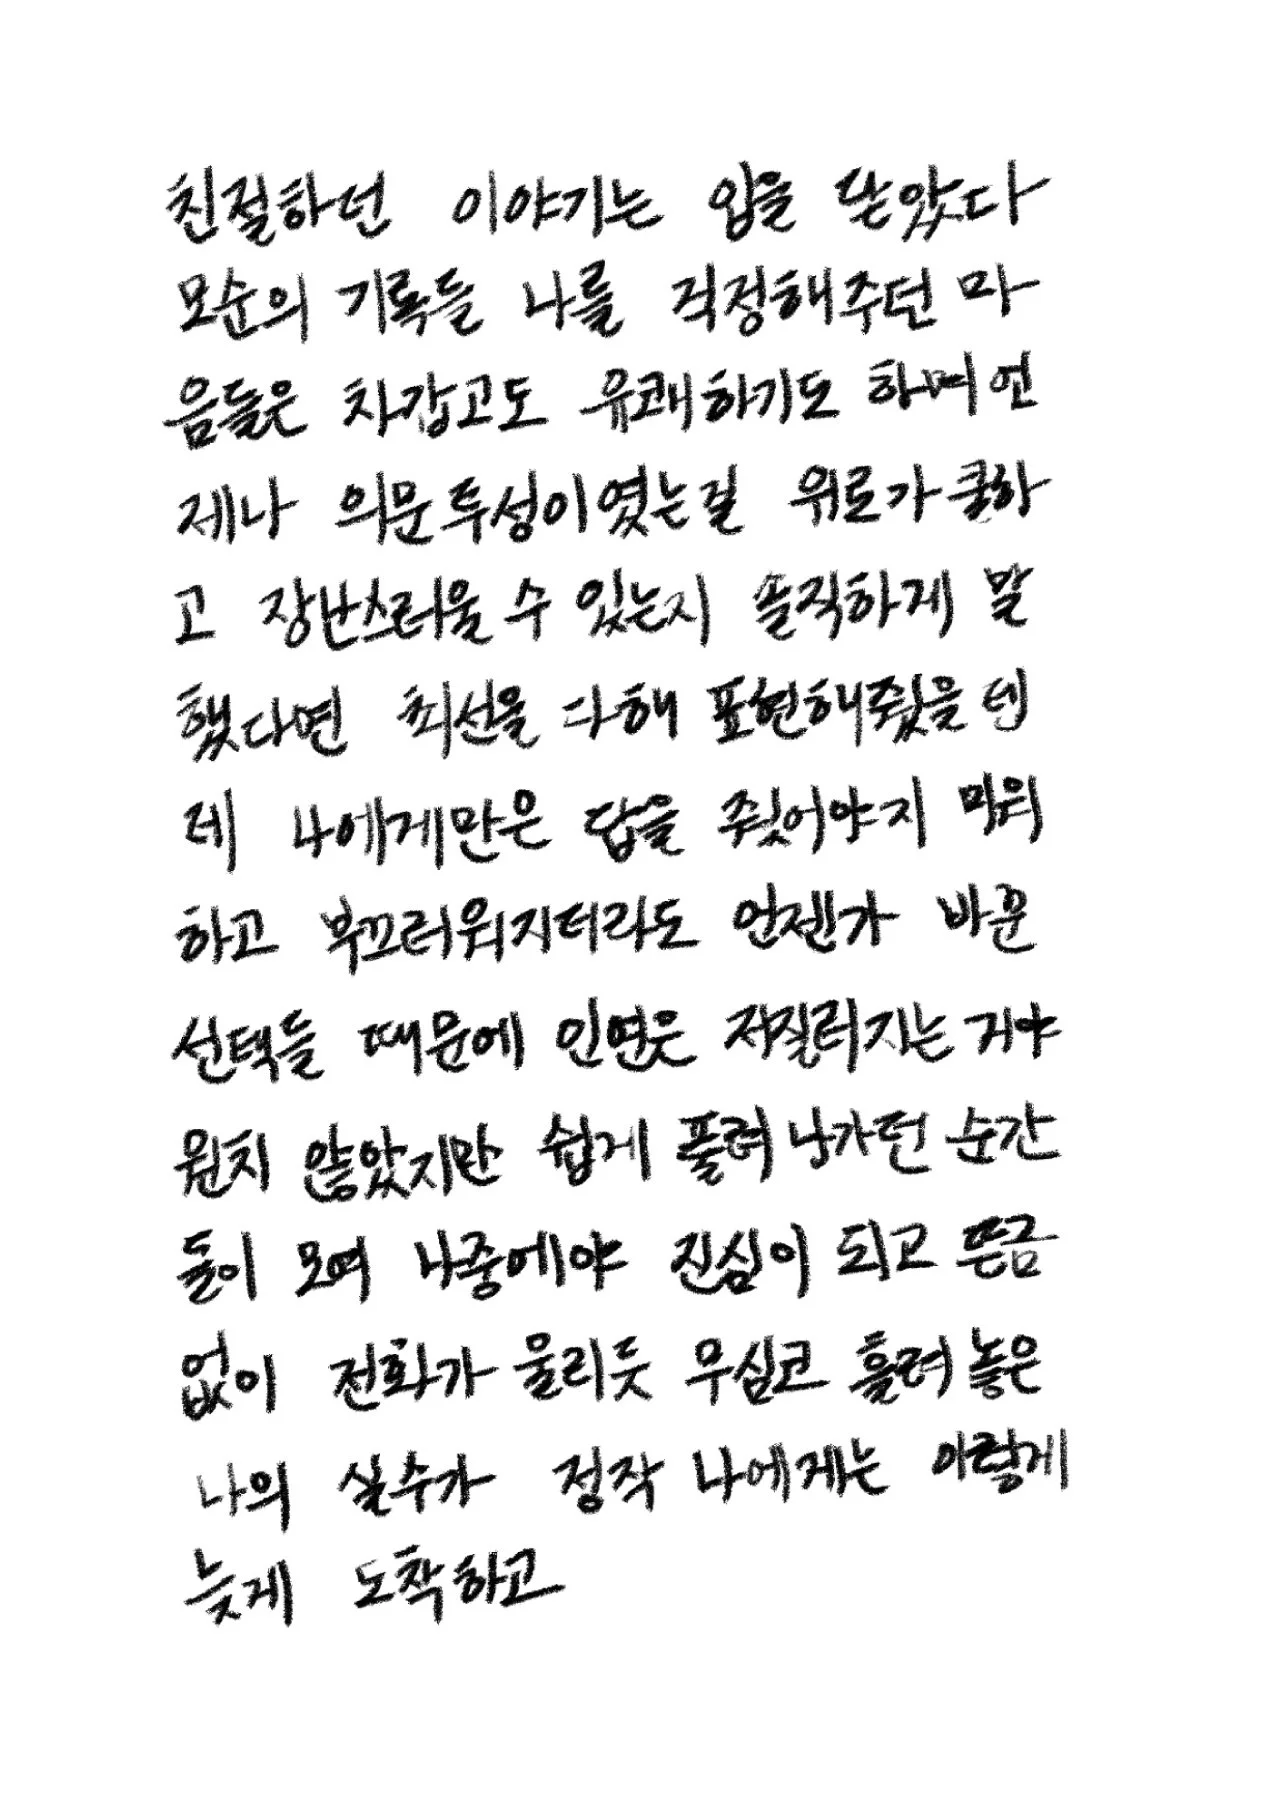 친절하던 이야기는 입을 닫았다
모순의 기록들 나를 걱정해주던 마
음들은 차갑고도 유쾌하기도 하며 언
제나 의문투성이였는걸 위로가 쿨하
고 장난스러울 수 있는지 솔직하게 말
했다면 최선을 다해 표현해줬을텐
데 나에게만은 답을 줬어야지 미워
하고 부끄러워지더라도 언젠가 바꾼
선택들 때문에 인연은 저질러지는거야
원치 않았지만 쉽게 풀려나가던 순간
들이 모여 나중에야 진심이 되고 뜬금
없이 전화가 울리듯 무심코 흘려놓은
나의 실수가 정작 나에게는 이렇게
늦게 도착하고